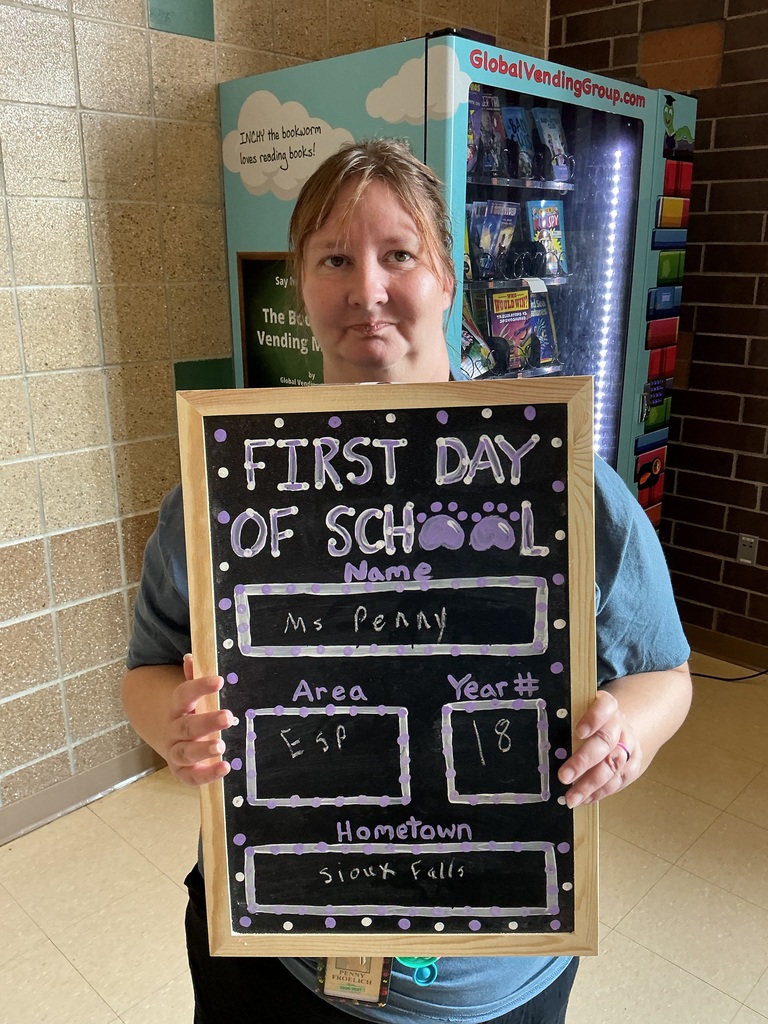 GlobalVendingGroup.com
INCHY the bookworm
loves reading books!
Say
The Bo
Vending M
by
Global Vendin
SPY
WORLD WIN?
FIRST DAY
OF SCHOOL
Name
Ms Penny
Area
Year #
ESP
18
Hometown
Sioux Falls
PENNY
FROELICH